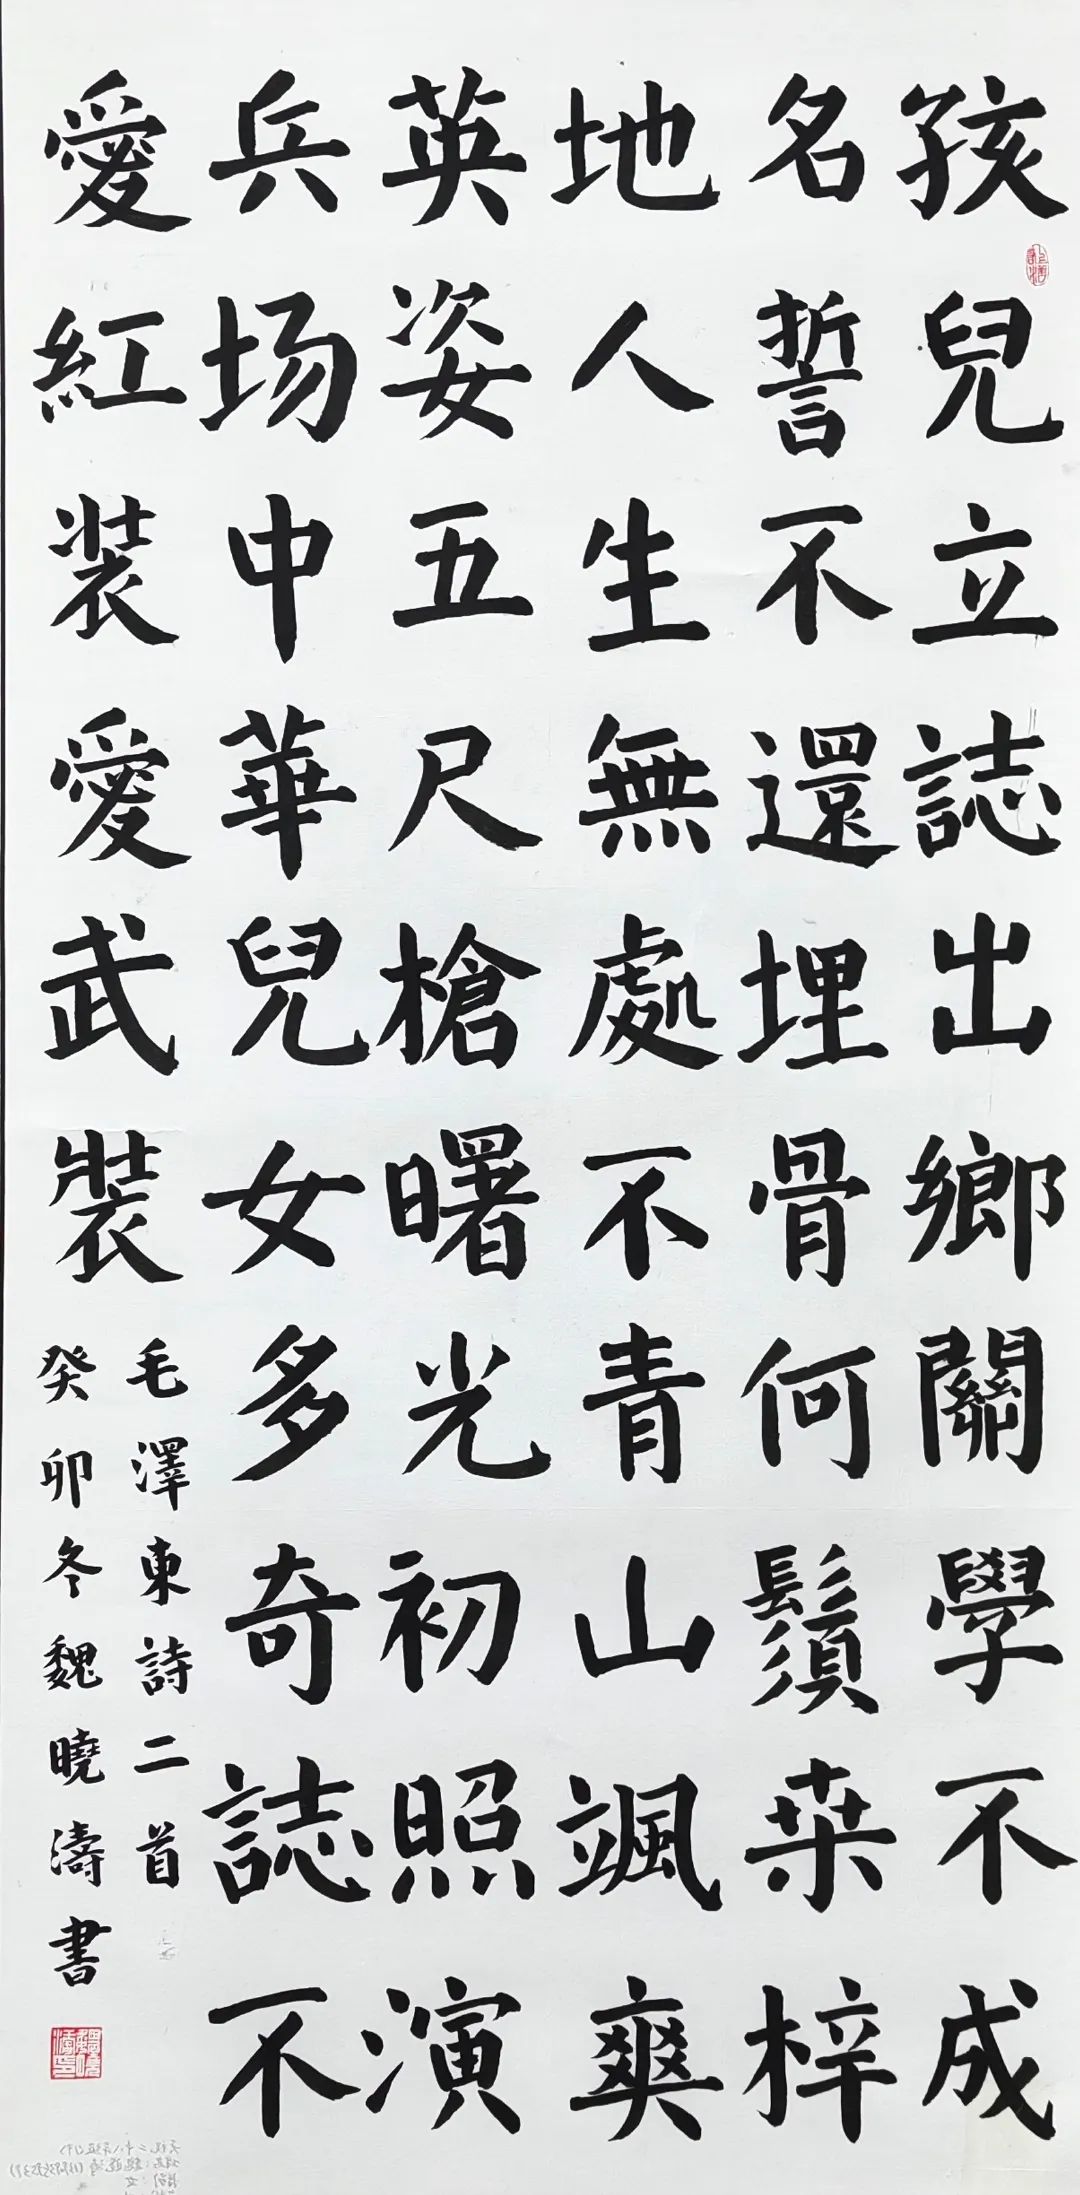 孩兒立誌出鄉關學不成
名誓不還埋骨何鬚桒梓
地人生無處不青山颯爽
英姿五尺槍曙光初照演
兵场中華兒女多奇誌不
愛紅装愛武裝
毛澤東詩二首
癸卯冬魏曉濤書